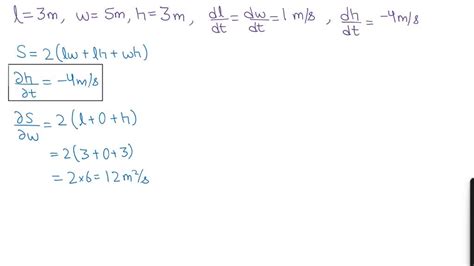 l = 3m, w = 5m, h = 3m, dl/dt = dw/dt = 1 m/s , dh/dt = -4 m/s
S = 2(lw + lh + wh)
∂h/∂t = -4 m/s
∂S/∂w = 2(l + 0 + h)
= 2(3 + 0 + 3)
= 2×6 = 12 m²/s